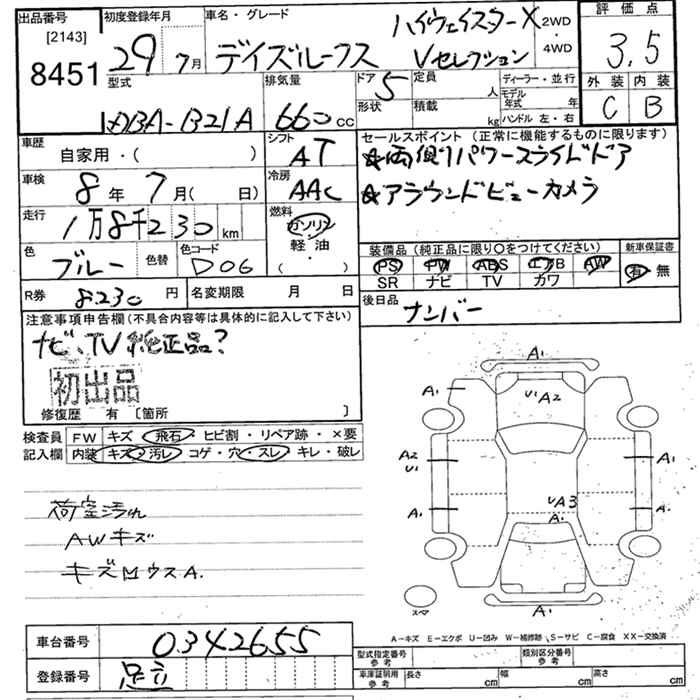 出品番号 初度登録年月 車名・グレード ハイウェイスターX 2WD ・ 4WD 評価点
[2143] 8451 29年7月 デイズルークス Vセレクション 3.5
型式 排気量 ドア 5 定員 人 ディーラー・並行 外装 内装
DBA-B21A 660cc 形状 積載 kg モデル年式 年 C B
ハンドル 左・右
車歴 シフト セールスポイント (正常に機能するものに限ります)
自家用・( ) AT ☆両側パワースライドドア
車検 8年7月( 日) 冷房 AAC ☆アラウンドビューカメラ
走行 1万8千230km 燃料 ガソリン・軽油・( )
色 ブルー 色替 色コード 装備品 (純正品に限り〇をつけてください) 新車保証書
PS PW ABS エアB AW 有 無
SR ナビ TV カワ
R券 8230円 名変期限 月 日 後日品 ナンバー
注意事項申告欄 (不具合内容等は具体的に記入して下さい)
ナビ、TV 純正品?
初出品
修復歴 有 〔箇所 〕
検査員 FW キズ・飛石・ヒビ割・リペア跡・×要
記入欄 内装 キズ・汚レ・コゲ・穴・スレ・キレ・破レ
荷室汚れ
AWキズ
A1
A1 U1 A2 A1
A2 U1 A1
A1 UA3 A1
A1
スペア A1
A-キズ E-エクボ U-凹み W-補修跡 S-サビ C-腐食 XX-交換済
車台番号 0342655 型式指定番号 参考 類別区分番号 参考
登録番号 足立 車庫証明用 参考 長さ cm 幅 cm 高さ cm